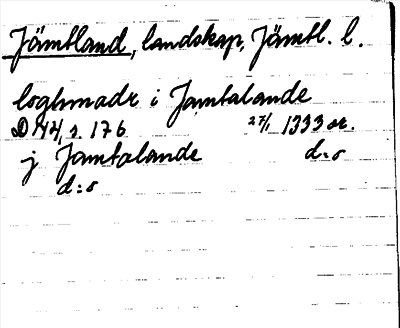 Jämtland, landskap, Jämtl. l.
loghmadr i Jamtalande
DN 14, s. 176 27/1 1333 or.
j Jamtalande d:o
d:o